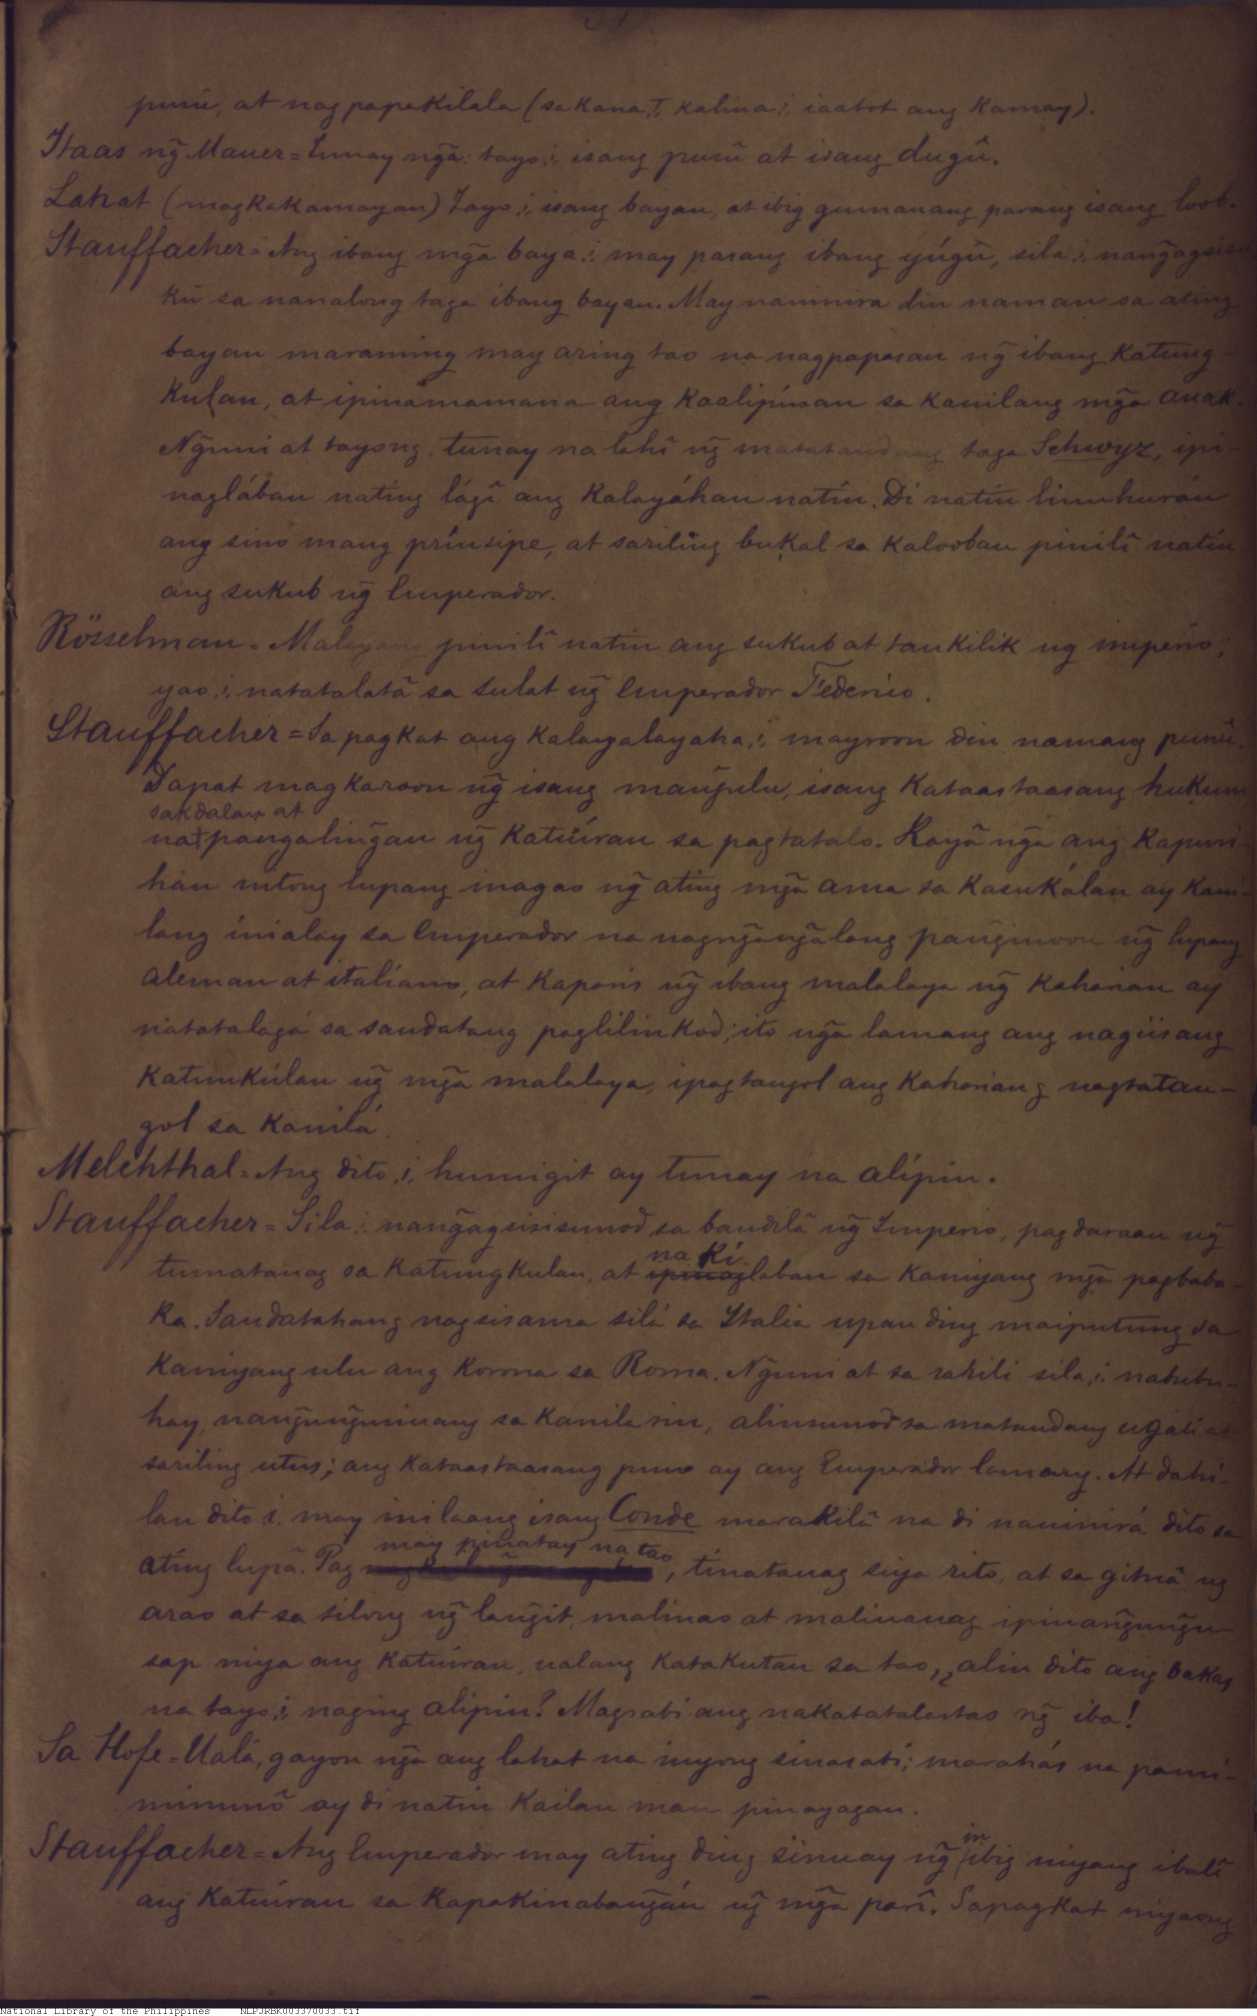 punū, at nag papakilala (sa kana,ţ, kaliua,i, iaabot ang kamay).
Itaas ng̃ Mauer = Tunay ng̃a: tayo,i, isang pusū at isang dugū.
Lahat (magkakamayan) Tayo,i, isang bayan, at ibig gumauang parang isang loob.
Stauffacher = Ang ibang mg̃a baya,i, may pasang ibang yúgū, sila,i, nang̃agsisu
kū sa nanalong taga ibang bayan. May naninira din naman sa ating
bayan maraming may aring tao na nagpapasan ng̃ ibang katung-
kulan, at ipinamamana ang kaalipínan sa kanilang mg̃a anak.
Ng̃uni at tayong tunay na lahī ng̃ matatandang taga Schwyz, ipi-
naglában nating lágī ang kalayáhan natín. Di natin liniluhurán
ang sino mang prínsipe, at sariling bukal sa kalooban pinilī natin
ang sukub ng̃ Emperador.
Rösselman = Malayang pinilī natin ang sukub at tankilik ng imperio;
yao,i, natatalatā sa sulat ng̃ Emperador Federico.
Stauffacher = Sapagkat ang kalayalayaha,i, mayroon din namang punū.
Dapat magkaroon ng̃ isang mang̃ulu, isang kataastaasang hukum
sakdalan at
na pangaling̃an ng̃ katuíran sa pagtatalo. Kayā ng̃a ang kapuri-
hán nitong lupang inagao ng̃ ating mg̃a ama sa kasukálan ay kani-
lang inialay sa Emperador na nagng̃ang̃alang pang̃inoon ng̃ lupang
aleman at italiano, at kaparis ng̃ ibang malalaya ng̃ kaharian ay
natatalagá sa sandatang paglilinkod; ito ng̃a lamang ang nagiisang
katunkúlan ng̃ mg̃a malalaya, ipagtangol ang kahariang nagtatan-
gol sa kanilá.
Melchthal = Ang dito,i, humigit ay tunay na alípin.
Stauffacher = Sila,i, nang̃agsisisunod sa bandilā ng̃ Imperio, pagdaraan ng̃
na ki
tumatauag sa katungkulan, at ipinaglaban sa kaniyang mg̃a pagbaba-
ka. Sandatahang nagsisama silá sa Italia upan ding maiputung sa
kaniyang ulu ang korona sa Roma. Ng̃uni at sa sarili sila,i, nabubu-
hay, sa kanila rin, alinsunod sa matandang ugali at
sariling utus; ang kataastaasang puno ay ang Emperador lamang. At dahi-
lan dito,i, may inilaang isang Conde marakilā na di naninirá dito sa
may pinatay na tao
ating lupā. Pag, tinatauag siya rito, at sa gitnā ng
arao at sa silong ng̃ lang̃it, malinao at maliuanag ipinang̃ung̃u-
sap niya ang katuiran, ualang katakutan sa tao, ¿alin dito ang bakas
na tayo,i, naging alipin? Magsabi ang nakatatalastas ng̃ iba!
Sa Hofe = Ualá, gayon ng̃a ang lahat na inyong sinasabi; marahás na pami-
minunō ay di natin kailan man pinayagan.
in
Stauffacher = Ang Emperador may ating ding sinuay ng̃ ibig niyang ibalī
ang katuíran sa kapakinabang̃án ng̃ mg̃a parī. Sapagkat niyaong
National Library of the Philippines NLPJRBK003370033.tif